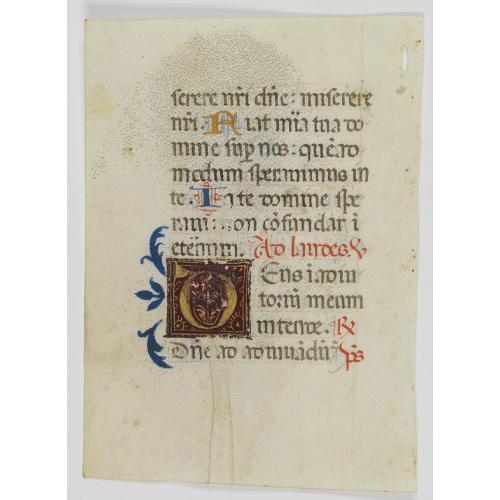 serere nr̄i dn̄e: miserere
nr̄i. Fiat mīa tua do
mine sup nos: quē ad
modum speravimus in
te. In te domine spe
ravi: non cōfundar i
eternum. Ad laudes. V
Deus i adiu
toriū meum
intende. R
Dn̄e ad adiuvādū ps